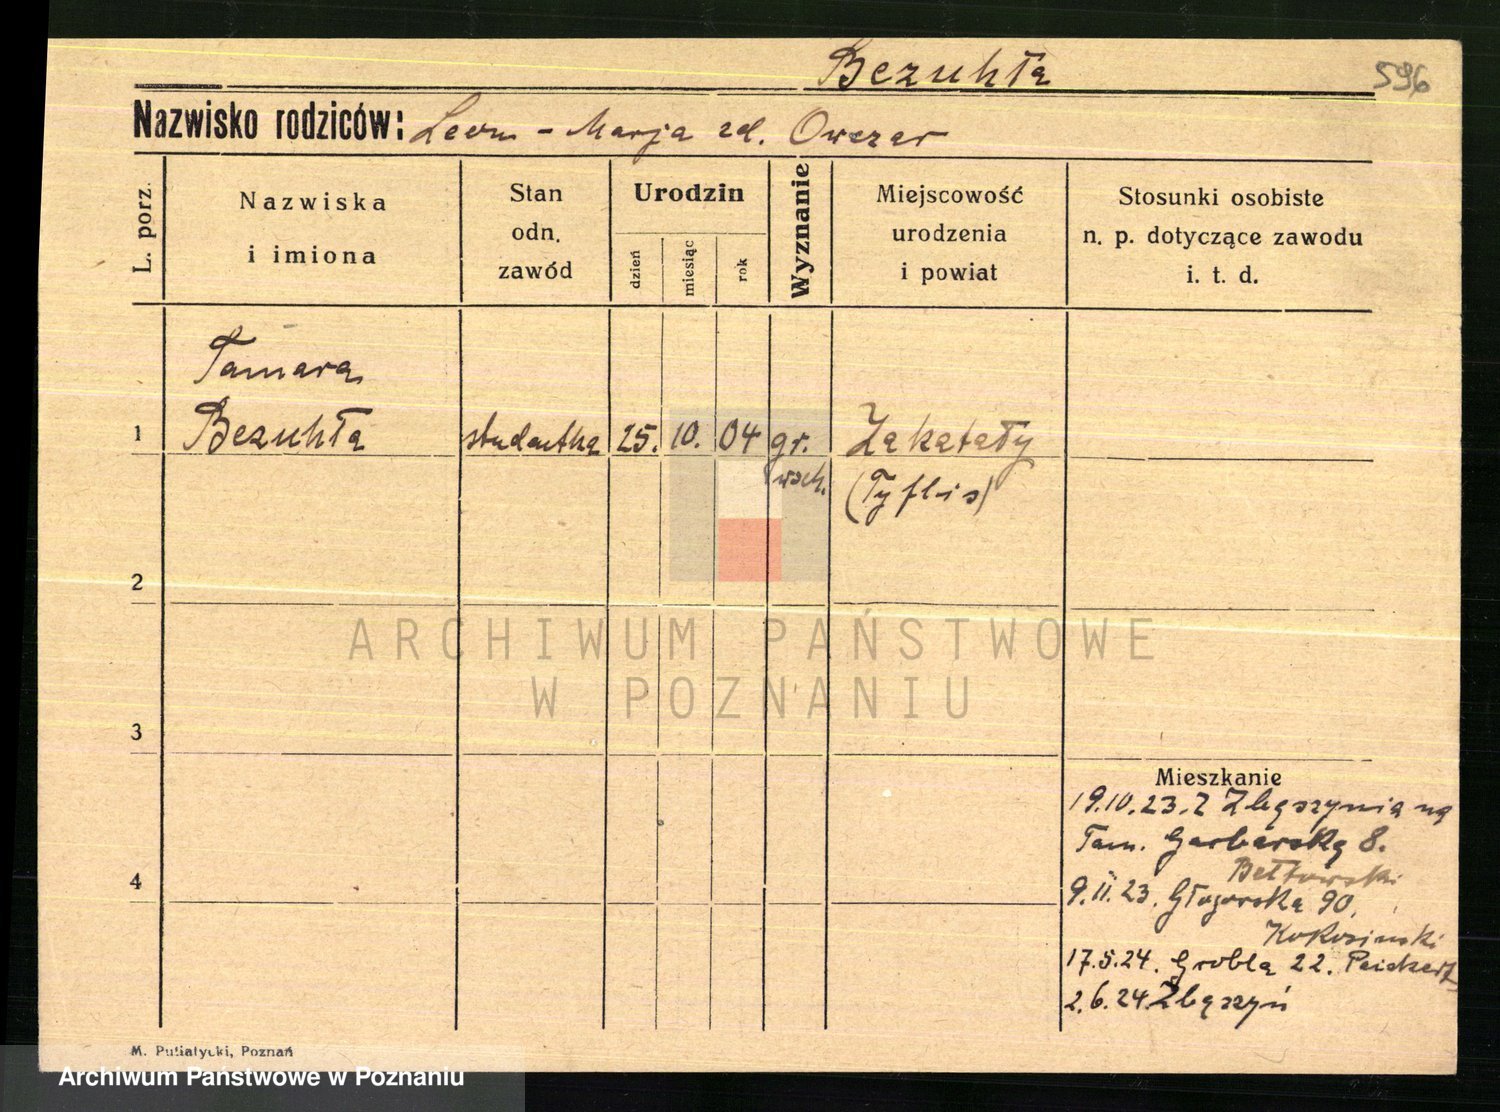 Bezuhła
596
Nazwisko rodziców: Leon - Marja zd. Owczar
L. porz.
Nazwiska
i imiona
Stan
odn.
zawód
Urodzin
dzień
miesiąc
rok
Wyznanie
Miejscowość
urodzenia
i powiat
Stosunki osobiste
n. p. dotyczące zawodu
i. t. d.
Tamara
1 Bezuhła studentka 25. 10. 04 gr. Zakatały
wsch. (Tyflis)
2
ARCHIWUM PAŃSTWOWE
W POZNANIU
3
Mieszkanie
19.10.23. Z Zbąszynia na
Tam. Garbarską 8.
4
9.11.23. Głogowska 90.
Kokosinski
17.5.24. Grobla 22.
2.6.24 Zbąszyń
M. Putiatycki, Poznań
Archiwum Państwowe w Poznaniu